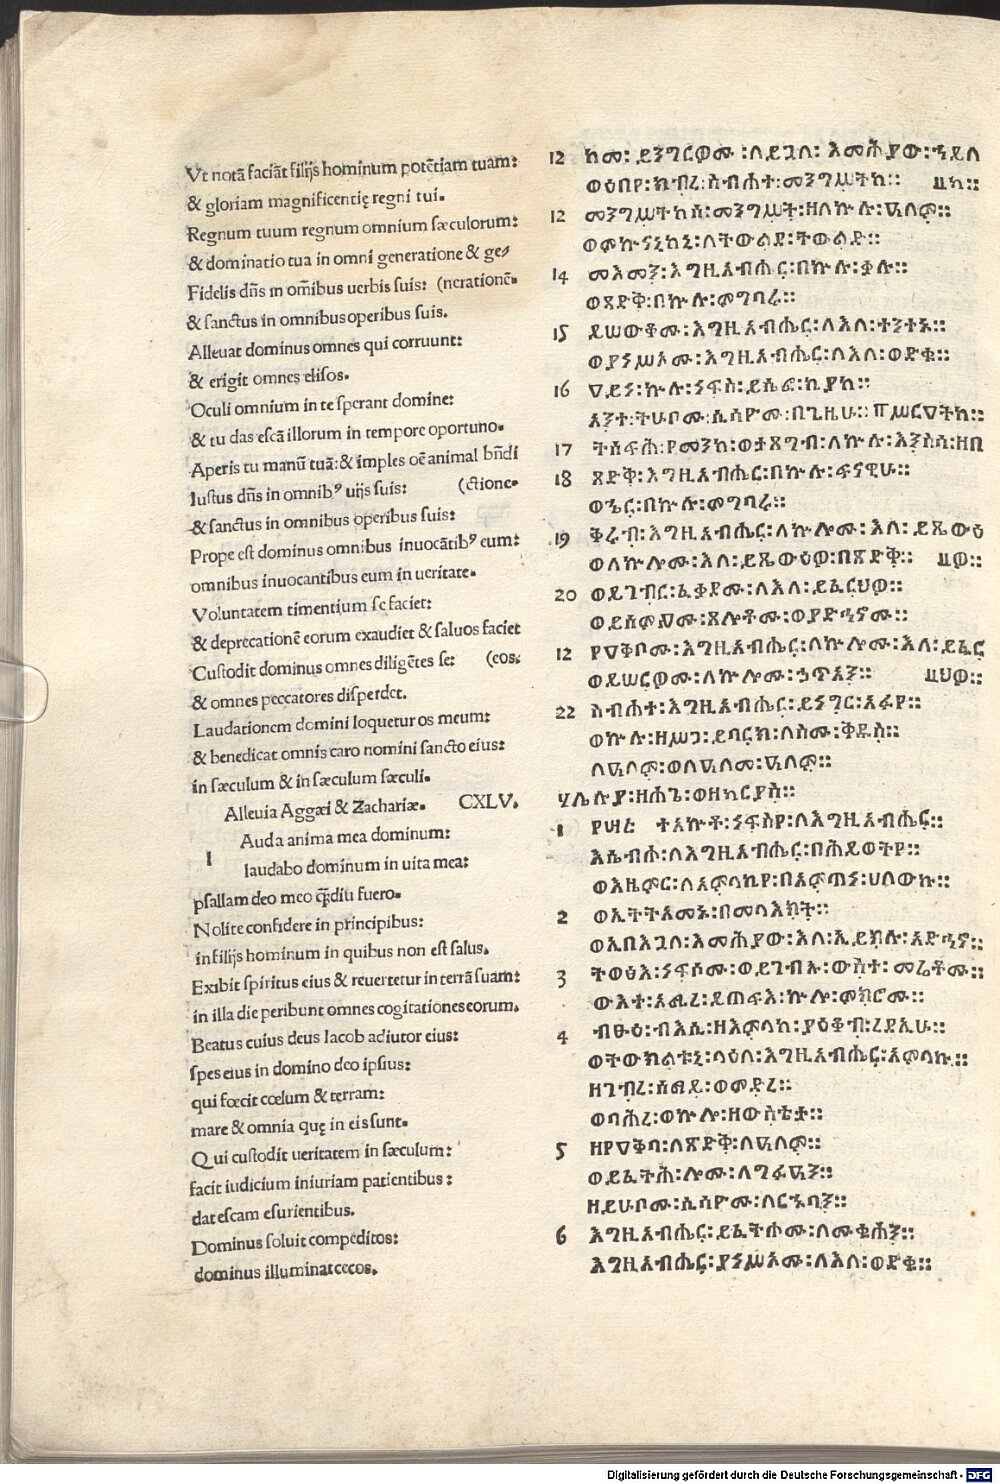 Vt notā faciāt filijs hominum potētiam tuam:
& gloriam magnificentię regni tui.
Regnum tuum regnum omnium sæculorum:
& dominatio tua in omni generatione & ge⸗
Fidelis dn̄s in om̄ibus uerbis suis: (nerationē.
& sanctus in omnibus operibus suis.
Alleuat dominus omnes qui corruunt:
& erigit omnes elisos.
Oculi omnium in te sperant domine:
& tu das escā illorum in tempore oportuno.
Aperis tu manū tuā: & imples oē animal bn̄di
Iustus dn̄s in omnibꝰ uijs suis: (ctione.
& sanctus in omnibus operibus suis:
Prope est dominus omnibus inuocātibꝰ eum:
omnibus inuocantibus eum in ueritate.
Voluntatem timentium se faciet:
& deprecationē eorum exaudiet & saluos faciet
Custodit dominus omnes diligētes se: (eos:
& omnes peccatores disperdet.
Laudationem domini loquetur os meum:
& benedicat omnis caro nomini sancto eius:
in sæculum & in sæculum sæculi.
Alleuia Aggæi & Zachariæ. CXLV.
Auda anima mea dominum:
l laudabo dominum in uita mea:
psallam deo meo ꝙ̄diu fuero.
Nolite confidere in principibus:
in filijs hominum in quibus non est salus.
Exibit spiritus eius & reuertetur in terrā suam:
in illa die peribunt omnes cogitationes eorum.
Beatus cuius deus Iacob adiutor eius:
spes eius in domino deo ipsius:
qui fœcit cœlum & terram:
mare & omnia quę in eis sunt.
Qui custodit ueritatem in sæculum:
facit iudicium iniuriam patientibus:
dat escam esurientibus.
Dominus soluit compeditos:
dominus illuminat cecos.
12 ከመ፡ ይንግርዎሙ፡ ለደቂቀ፡ እመሕያው፡ ኀይለ
ወዕበየ፡ ክብረ፡ ስብሐተ፡ መንግሥትከ። ዚከ።
12 መንግሥትከሰ፡ መንግሥት፡ ዘለኵሉ፡ ዓለም።
ወምኵናኒከኒ፡ ለትውልደ፡ ትውልድ።
14 መእመን፡ እግዚአብሔር፡ በኵሉ፡ ቃሉ።
ወጻድቅ፡ በኵሉ፡ ምግባሩ።
15 ያሠውቆሙ፡ እግዚአብሔር፡ ለእለ፡ ተንተኑ።
ወያነሥኦሙ፡ እግዚአብሔር፡ ለእለ፡ ወድቁ።
16 ዓይነ፡ ኵሉ፡ ነፍስ፡ ይሴፎ፡ ኪያከ።
አንተ፡ ትሁቦሙ፡ ሲሳዮሙ፡ በጊዜሁ፡ ፐሥርዓትከ።
17 ትሰፍሕ፡ የማንከ፡ ወታጸግብ፡ ለኵሉ፡ እንስሳ፡ ዘበ
18 ጻድቅ፡ እግዚአብሔር፡ በኵሉ፡ ፍናዊሁ።
ወኄር፡ በኵሉ፡ ምግባሩ።
19 ቅሩብ፡ እግዚአብሔር፡ ለኵሎሙ፡ እለ፡ ይጼውዑ
ወለኵሎሙ፡ እለ፡ ይጼውዕዎ፡ በጽድቅ። ዚዎ።
20 ወይገብር፡ ፈቃዶሙ፡ ለእለ፡ ይፈርህዎ።
ወይሰምዖሙ፡ ጸሎቶሙ፡ ወያድኅኖሙ።
12 የዓቅቦሙ፡ እግዚአብሔር፡ ለኵሎሙ፡ እለ፡ ይፈር
ወይሠርዎሙ፡ ለኵሎሙ፡ ኃጥኣን። ዚህዎ።
22 ስብሐተ፡ እግዚአብሔር፡ ይነግር፡ አፉየ።
ወኵሉ፡ ዘሥጋ፡ ይባርክ፡ ለስሙ፡ ቅዱስ።
ለዓለም፡ ወለዓለመ፡ ዓለም።
ሃሌሉያ፡ ዘሐጌ፡ ወዘካርያስ።
1 የዛሪ ተአኵቶ፡ ነፍስየ፡ ለእግዚአብሔር።
እሴብሖ፡ ለእግዚአብሔር፡ በሕይወትየ።
ወእዜምር፡ ለአምላኪየ፡ በአምጣነ፡ ሀለውኩ።
2 ወኢትትአመኑ፡ በመላእክት።
ወኢበእጓለ፡ እመሕያው፡ እለ፡ ኢይክሉ፡ አድኅኖ።
3 ትወፅእ፡ ነፍሶሙ፡ ወይገብኡ፡ ውስተ፡ መሬቶሙ።
ውእተ፡ አሚረ፡ ይጠፍእ፡ ኵሎ፡ ምክሮሙ።
4 ብፁዕ፡ ብእሲ፡ ዘእምላከ፡ ያዕቆብ፡ ረዳኢሁ።
ወትውክልቱኒ፡ ላዕለ፡ እግዚአብሔር፡ አምላኩ።
ዘገብረ፡ ሰማየ፡ ወምድረ።
ወባሕረ፡ ወኵሉ፡ ዘውስቴታ።
5 ዘየዓቅባ፡ ለጽድቅ፡ ለዓለም።
ወይፈትሕ፡ ሎሙ፡ ለግፉዓን።
ዘይሁቦሙ፡ ሲሳዮሙ፡ ለርኁባን።
6 እግዚአብሔር፡ ይፈትሖሙ፡ ለሙቁሓን።
እግዚአብሔር፡ ያነሥኦሙ፡ ለእለ፡ ወድቁ።
Digitalisierung gefördert durch die Deutsche Forschungsgemeinschaft - DFG